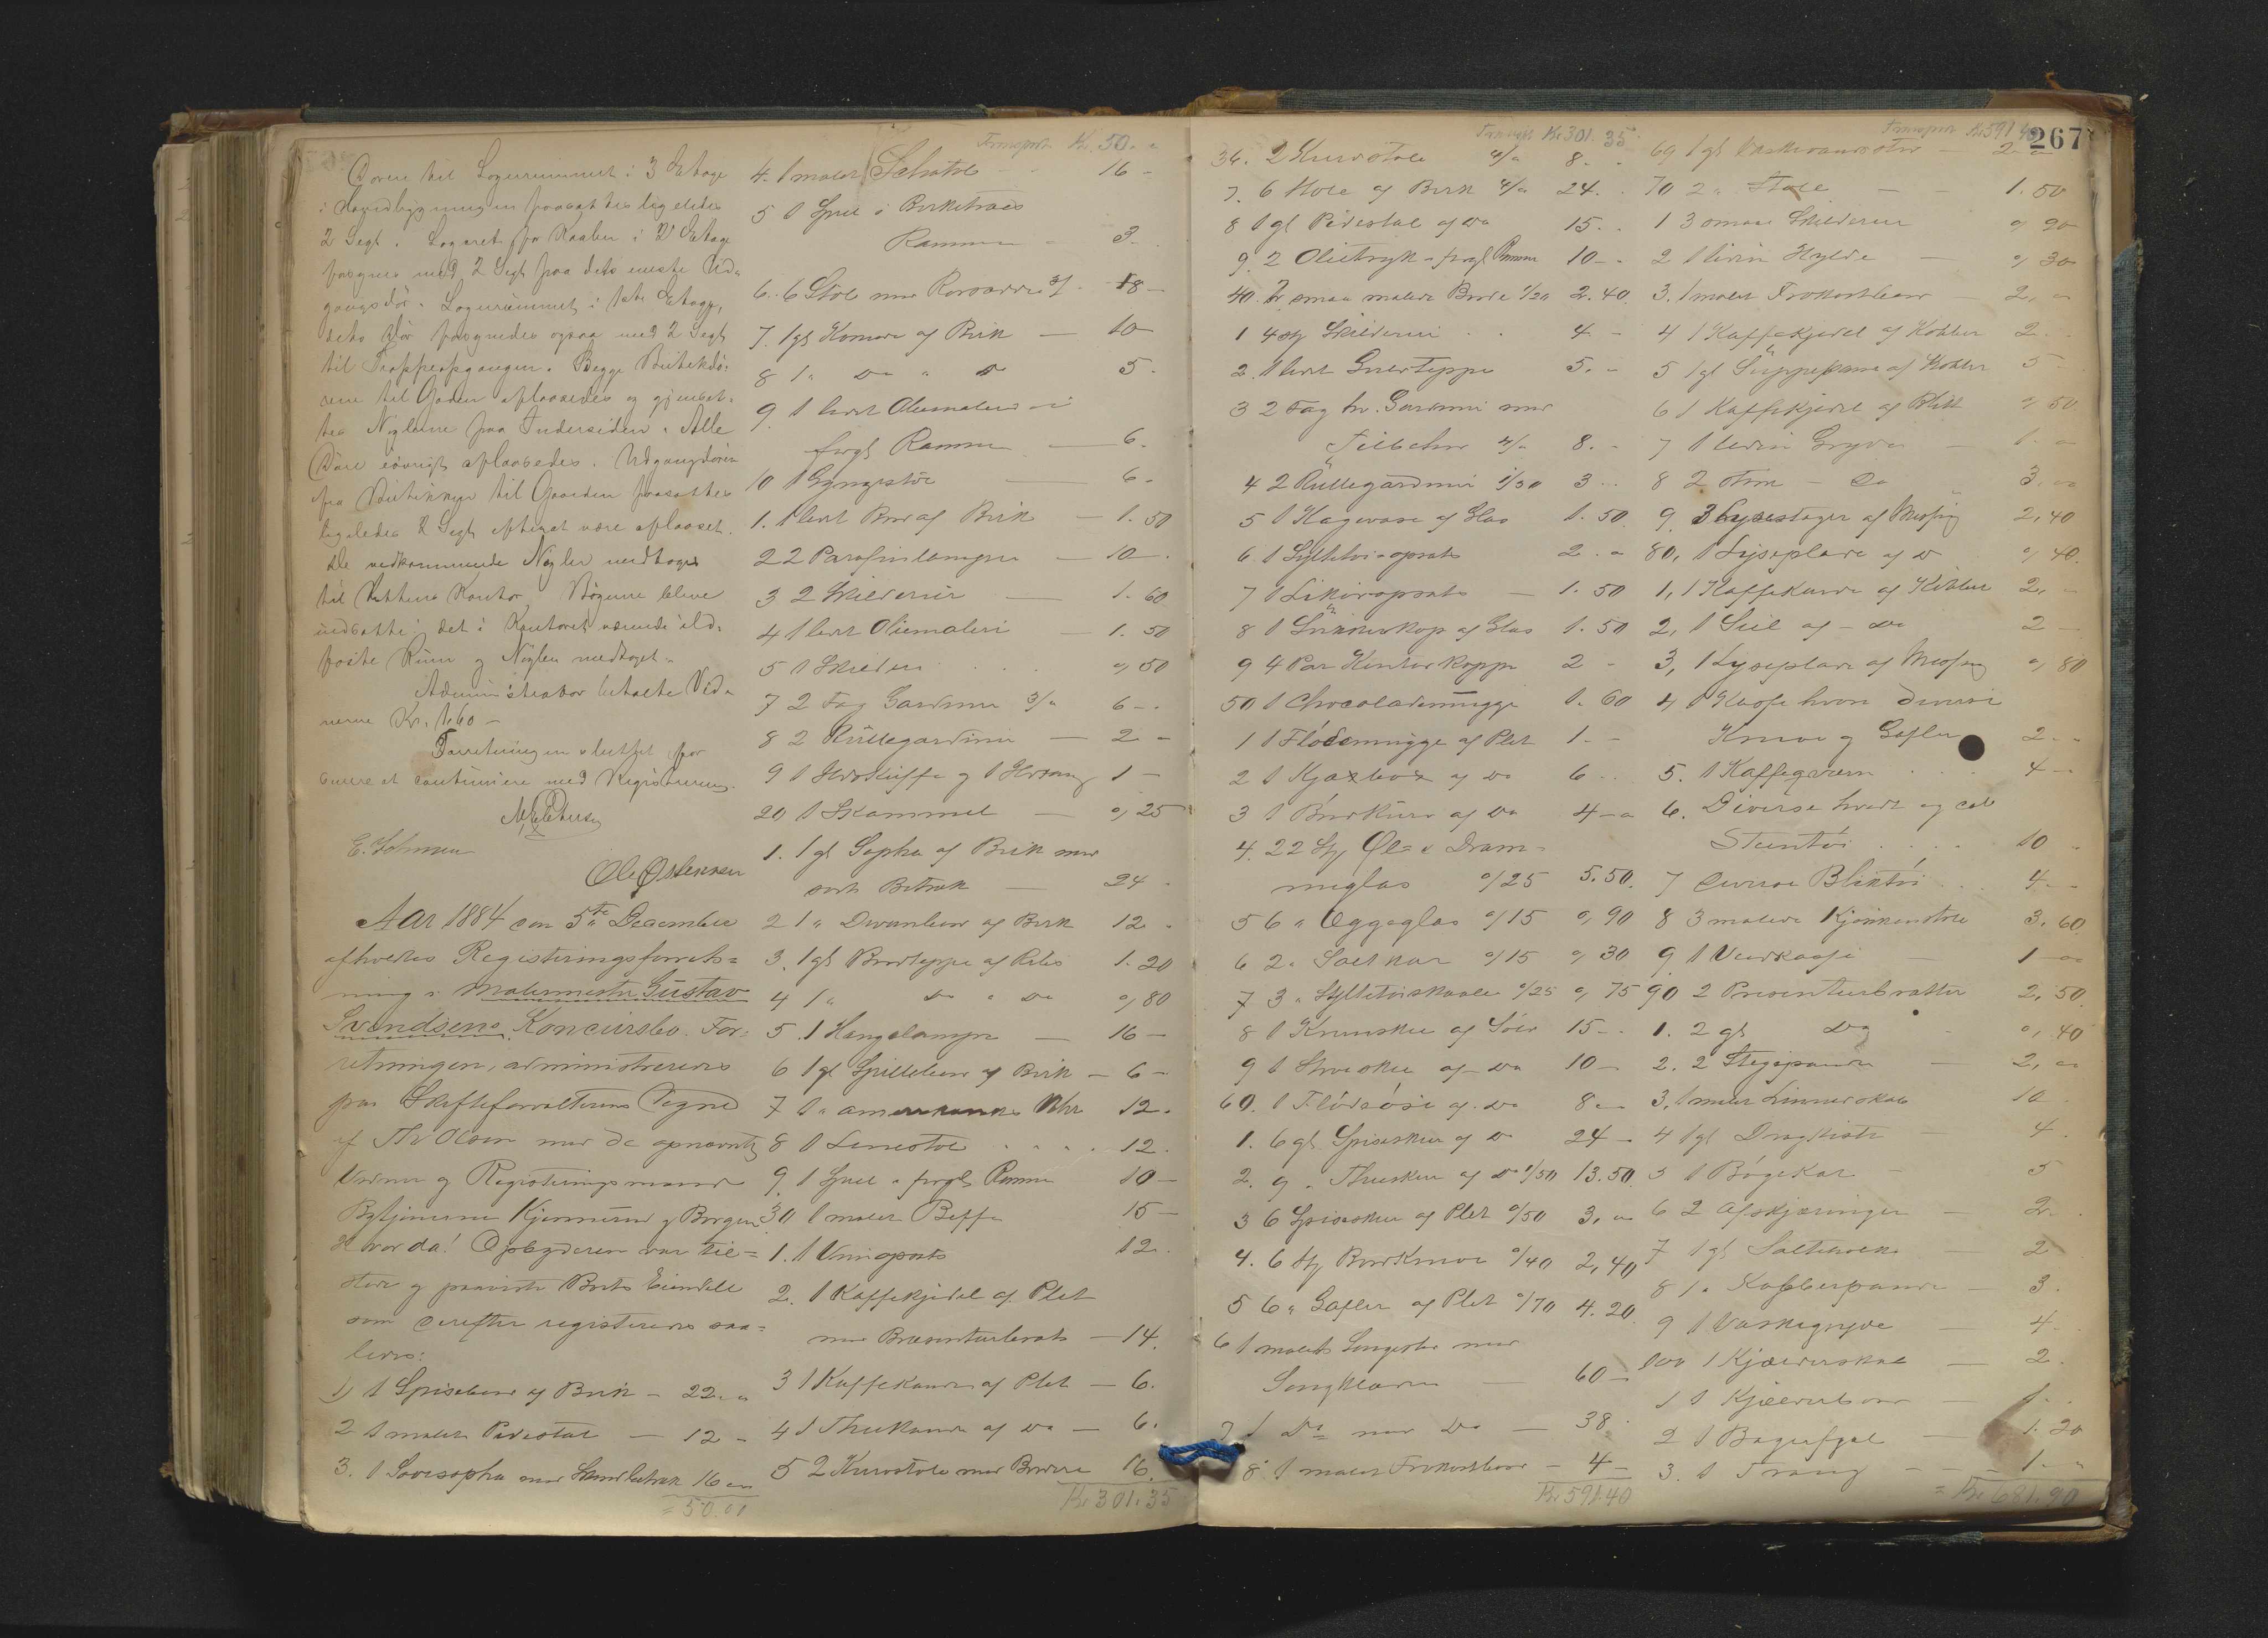 Døren til Logerummet i 3 Etage
i Gaardbygningen paasattes ligeledes
2 Segl. Logeret for Kaaber i 2 Etage
forsynes med 2 Segl paa dets eneste Ud-
gangsdør. Logerummet i 1ste Etage,
dets Dør forsynedes ogsaa med 2 Segl
til Trappeopgangen. Begge Butikdø-
rene til Gaden aflaasedes og gjensat-
tes Nøglerne paa Indersiden. Alle
Døre iøvrigt aflaasedes. Udgangsdøren
fra Butikken til Gaarden paasattes
ligeledes 2 Segl efterat være aflaaset.
De vedkommende Nøgler medtoges
til Rettens Kontor. Bøgerne bleve
indsatte i det i Kontoret værende ild-
faste Rum og Nøglen medtoget.
Administrator betalte Vid-
nerne Kr. 1.60 -
Forretningen sluttet for
senere at continuere med Registrering.
E. Johnsen
Ole Østensen
Aar 1884 den 5te December
afholdtes Registeringsforret-
ning i Malermester Gustav
Svendsens Koncursbo. For-
retningen administreredes
paa Skifteforvalterens Vegne
af Th. Olsen med de opnævnte
Vidner og Registeringsmænd
Bytjenerne Kjennerud og Borgen
Hvorda! Opbyderen var til-
stede og paaviste Boets Eiendele
som derefter registreredes saa-
ledes:
1) 1 Spisebord af Birk - 22. "
2 1 malet Pidestal - 12 -
3. 1 Sovesopha med Skindbetræk 16 "
= 50.00
Transport Kr. 50. "
4. 1 malet Schatol 16 -
5 1 Speil i Birketræes
Ramme - 3.
6. 6 Stole med Rorsæde 3/. 18 -
7. 1 gl Komode af Birk - 10
8 1 " do " do 5.
9. 1 lidet Oliemaleri i
forgl Ramme - 6.
10 1 Gyngestol - 6 -
1. 1 lidet Bord af Birk - 1.50
2 2 Parafinlamper - 10 -
3 2 Skilderier - 1.60
4 1 lidet Oliemaleri - 1.50
5 1 Skilderi . . . ",50
7 2 Fag Gardiner 3/" 6 -
8 2 Rullegardiner - 2 -
9 1 Ildskuffe og 1 Ildtang 1 -
20 1 Skammel - ",25
1. 1 gl Sopha af Birk med
sort Betræk - 24 -
2 1 " Divanbord af Birk 12 -
3. 1 gl Bordteppe af Rits 1.20
4 1 " do " do ",80
5. 1 Hængelampe - 16 -
6 1 gl Spillebord af Birk - 6 -
7 1 " amerikansk Uhr 12 -
8 1 Lenestol . . . 12.
9. 1 Speil i forgl Ramme 10 -
30 1 malet Boffe 15 -
1. 1 Vinopsats 12.
2. 1 Kaffekjedel af Plet
med Præsenterbret - 14.
3 1 Kaffekande af Plet - 6.
4 1 Theekande af do - 6.
5 2 Kurvstole med Broderi 16.
Kr 301.35
Transpt Kr 301.35
36. 2 Kurvstole 4/" 8. -
7. 6 Stole af Birk 4/" 24. -
8 1 gl Pidestal af do 15. -
9. 2 Olietryk i forgl Ramme 10 - -
40. 2 smaa malede Borde 1/20 2.40
1 4 stk Skilderier . . 4 -
2. 1 lidet Gulvteppe 5. -
3 2 Fag hv. Gardiner med
Tilbehør 4/" 8. -
4 2 Rullegardiner 1/50 3 - -
5 1 Kagevase af Glas 1.50
6 1 Syltetøiopsats 2. "
7 1 Likøropsats - 1.50
8 1 Sukkerkop af Glas 1.50
9 4 Par Kontorkopper 2 -
50 1 Chocolademugge 1.60
1 1 Flødemugge af Plet 1. -
2 1 Kjaxbox af do 6 - -
3 1 Brødkurv af do 4 - "
4. 22 Stk Øl- & Dram-
meglas "/25 5.50
5 6 " Æggeglas "/15 ",90
6 2 " Saltkar "/15 ",30
7 3 " Syltetøiskaale "/25 ",75
8 1 Kremskee af Sølv 15 - -
9 1 Strøskee af do 10 -
60. 1 Flødeøse af do 8 - "
1. 6 gl Spiseskeer af do 24 -
2. 9 " Theskeer af do 1/50 13.50
3 6 Spiseskeer af Plet "/50 3. "
4. 6 Stk Bordknive "/40 2,40
5 6 " Gafler af Plet "/70 4.20
6 1 malet Sengested med
Sengklæder - 60 -
7 1 do med do - 38.
8 1 malet Frokostbord - 4 -
Kr 591.40
Transport Kr 591.40
267
69 1 gl Vaskevandsstol - 2. "
70 2 " Stole - - 1.50
1 3 smaa Skilderier ",90
2 1 liden Hylde - ",30
3. 1 malet Frokostbord 2, "
4 1 Kaffekjedel af Kobber 2 -
5 1 gl Suppepande af Kobber 5 -
6 1 Kaffekjedel af Blik ",50
7 1 liden Gryde - 1. "
8 2 Jern - do 3. "
9. 3 Lysestager af Messing 2,40
80, 1 Lyseplade af do ",40
1, 1 Kaffekande af Kobber 2, -
2, 1 Siel af - do 2 -
3, 1 Lyseplade af Messing ",80
4, 1 Kasse hvori diverse
Knive og Gafler 2. "
5. 1 Kaffeqværn . . . 4 -
6. Diverse hvidt og col
Steentøi . . . . 10 "
7 diverse Bliktøi . . 4 - -
8 3 malede Kjøkkenstole 3.60
9 1 Vedkasse - 1 - "
90 2 Presenterbretter 2,50
1. 2 gl do " ,40
2. 2 Stegepander - 2, "
3. 1 malet Linnedskab 10.
4 1 gl Dragkiste - 4.
5 1 Bøgekar - 5
6 2 Afskjæringer - 2 -
7 1 gl Salteholk 2
8 1 " Kobberpande - 3.
9 1 Vaskegryde - 4 -
100 1 Kjælderskab - 2.
1 1 Kjælderbord - 1. -
2 1 Bagefjæl - 1.20
3. 1 Traug - - 1. "
= Kr 681.90